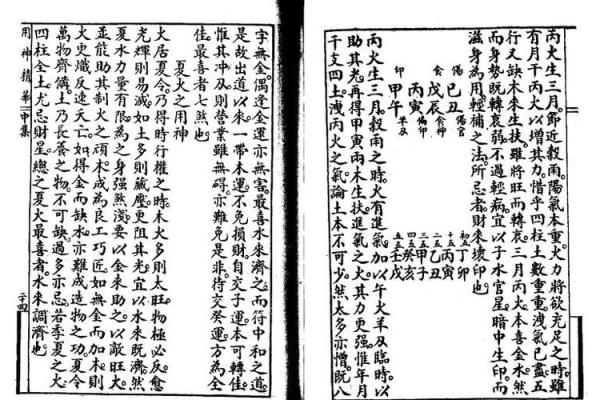 丙火生三月節近穀雨陽氣本重火力將欲充足之時雖
有月干丙火以增其力惜乎四柱土數重重洩氣已盡五
行又缺木來生扶雖將旺而轉衰三月丙火本喜金水然
而身勢既轉衰弱不過輕病宜以子水官星暗中生印而
滋身為用輕補之法所忌者財來壞印也
傷 己丑 傷官
食 戊辰 食神
丙寅 偏印
印 甲午 羊刃
初五 丁卯
十五 丙寅
二五 乙丑
三五 甲子
四五 癸亥
五五 壬戌
丙火生三月穀雨之時火有進氣加以午火羊刃臨時以
助其丙再得甲寅兩木生扶進氣之火其力更強惟年月
干支四土洩丙火之氣論土本不可少然太多亦憎既八
字無金偶逢金運亦無害最喜水來濟之而符中和之道
是故出道以來一帶木運不免損財自交子運本可轉佳
惟其沖及則營業雖無礙亦難免是非待交癸運方為全
佳最喜者七煞也
夏火之用神
火居夏令乃得時行權之時木火多則太旺物極必反愈
光輝則易滅如土多則藏壓更阻其光宜以水來既濟然
夏水力量有限為之身強煞淺要以金來助之以敵旺火
並能助其制火之頑木成為良工巧匠如無金而加木則
火更熾反速夭亡如得金而缺水亦難成造物之功夏令
萬物齊備土乃長養之物不可缺過多亦忌若季夏之火
四柱全土尤忌財星總之夏火最喜者水來調濟也
用神精華 中集
二四